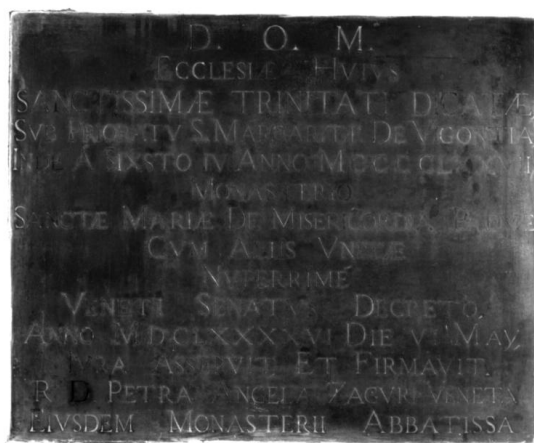 D. O. M.
ECCLESIÆ HVIVS
SANCTISSIMÆ TRINITATI DICATÆ
SVB PRIORATV S. MARGARITÆ DE VIGONTIA
A SIXSTO IV ANNO
MONASTERIO
SANCTÆ MARIÆ DE MISERICORDIA PADVÆ
CVM ALIIS VNITÆ
NVPERRIME
VENETI SENATVS DECRETO
ANNO MDCLXXXXVI DIE VI MAY,
IVRA ASSERVIT ET FIRMAVIT
R D PETRA ANGELA ZAGVRI VENETA
EIVSDEM MONASTERII ABBATISSA